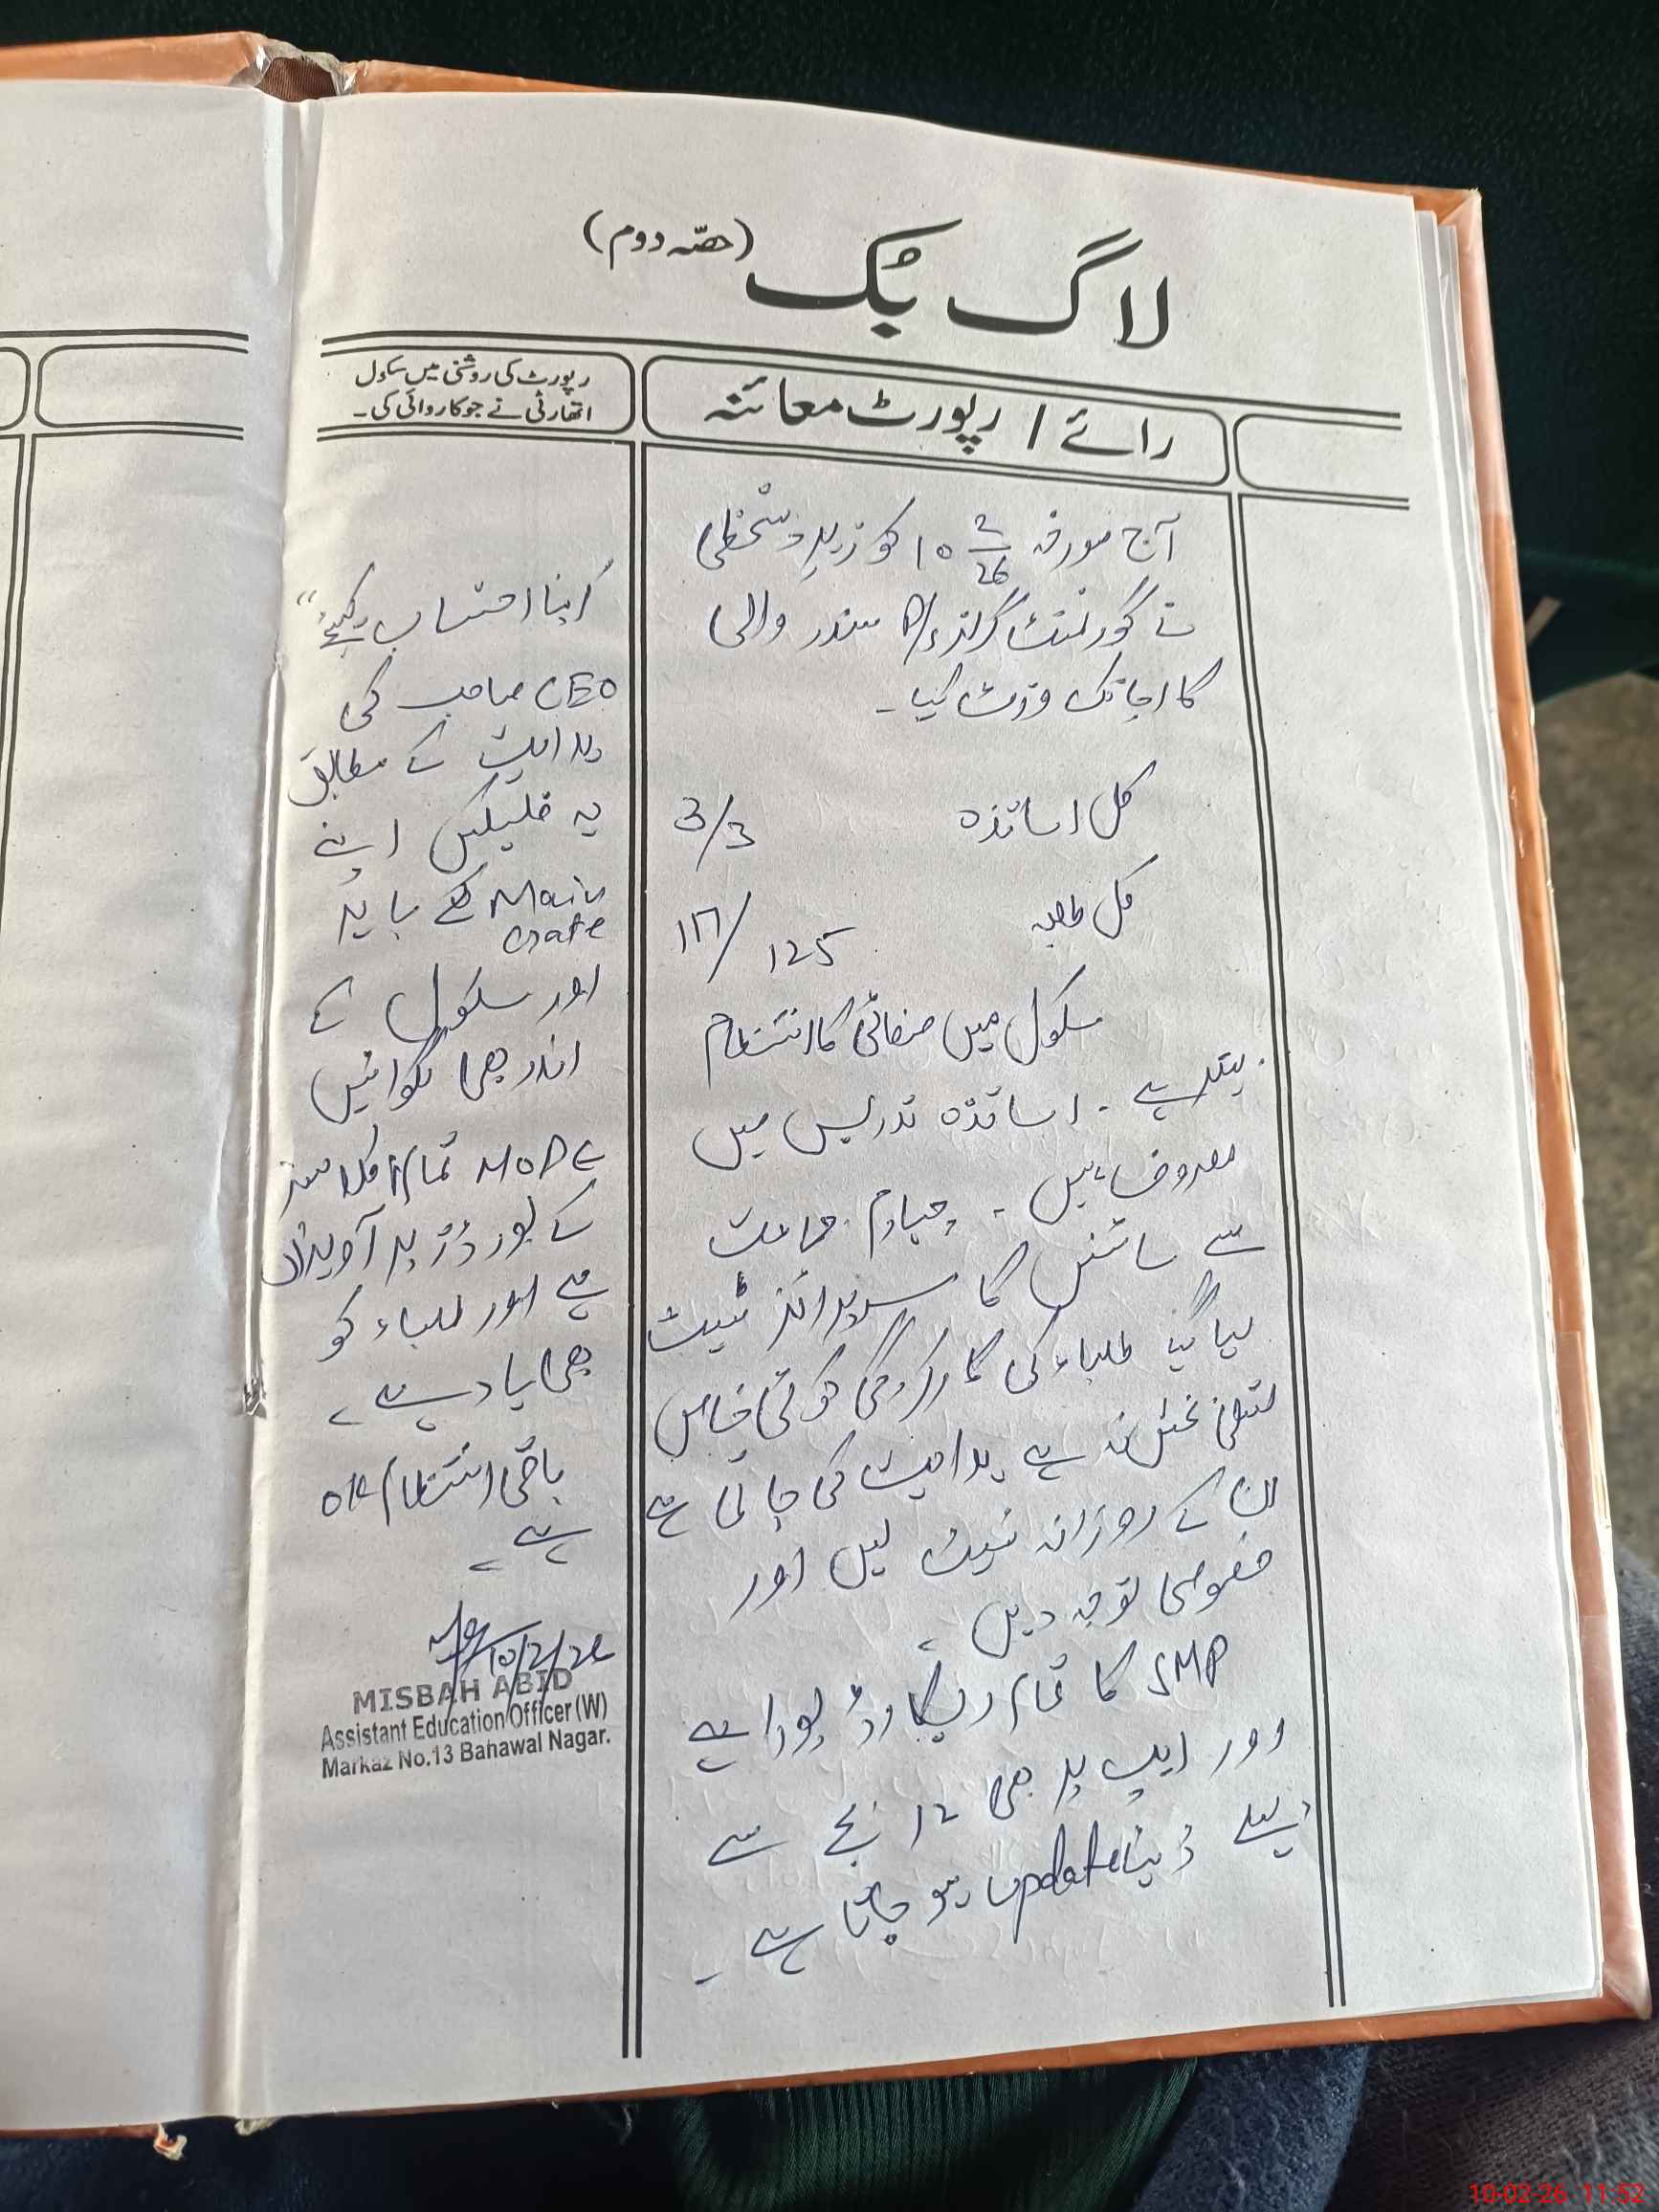 لاگ بک (حصہ دوم)
رائے / رپورٹ معائنہ
رپورٹ کی روشنی میں سکول
اتھارٹی نے جو کاروائی کی۔
آج مورخہ 10 2/26 کو زیرِ دستخطی
نے گورنمنٹ گرلز P/S سندر والی
کا اچانک وزٹ کیا۔
کل اساتذہ 3/3
کل طلبہ 117/125
سکول میں صفائی کا انتظام
بہتر ہے ۔ اساتذہ تدریس میں
مصروف ہیں ۔ چہارم جماعت
سے سائنس کا سرپرائز ٹیسٹ
لیا گیا طلباء کی کارکردگی کوئی خاص
تسلی بخش نہ ہے ہدایت کی جاتی ہے
ان کے روزانہ ٹیسٹ لیں اور
خصوصی توجہ دیں ،
SMP کا تمام ریکارڈ پورا ہے
اور ایپ پر بھی 12 بجے سے
پہلے ڈیٹا update ہو جاتا ہے ۔
"اپنا احتساب کیجئے"
CEO صاحب کی
ہدایت کے مطابق
یہ فلیکس اپنے
Main Gate کے باہر
اور سکول کے
اندر بھی لگوائیں
MOP تمام کلاسز
کے بورڈز پر آویزاں
ہے اور طلباء کو
بھی یاد ہے ،
باقی انتظام OK
ہے ،
10/2/26
MISBAH ABID
Assistant Education Officer (W)
Markaz No.13 Bahawal Nagar.
10-02-26 11:52